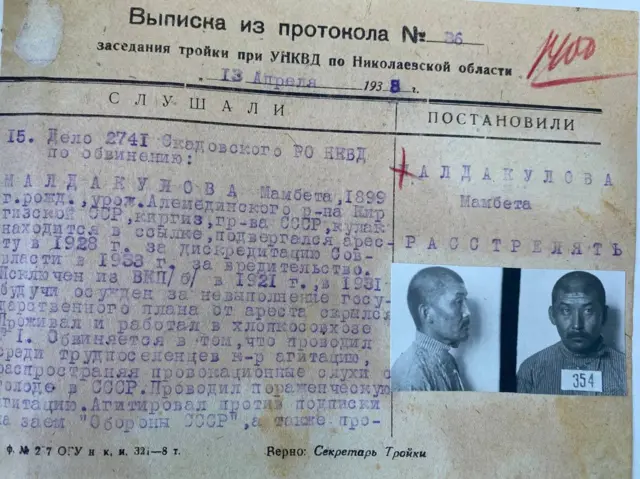 Выписка из протокола № 26
заседания тройки при УНКВД по Николаевской области
13 Апреля 1938 г.
СЛУШАЛИ
ПОСТАНОВИЛИ
15. Дело 2741 Скадовского РО НКВД
по обвинению:
МАЛДАКУЛОВА Мамбета, 1899
г.рожд., урож. Алемединского р-на Кир
гизской ССР, киргиз, гр-ва СССР, кулак
находится в ссылке, подвергался арес-
ту в 1928 г. за дискредитацию Сов-
власти в 1933 г. за вредительство.
Исключен из ВКП/б/ в 1921 г., в 1931
будучи осужден за невыполение госу-
дарственного плана от ареста скрылся
Проживал и работал в хлопкосовхозе
1. Обвиняется в том, что проводил
среди трудпоселенцев к-р агитацию,
распространяя провокационные слухи о
голоде в СССР. Проводил пораженческую
агитацию. Агитировал против подписки
на заем "Обороны СССР", а также про-
МАЛДАКУЛОВА
Мамбета
РАССТРЕЛЯТЬ
354
Верно: Секретарь Тройки